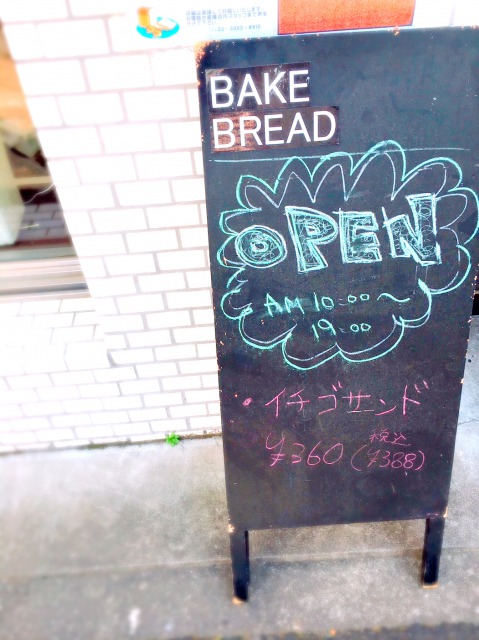 BAKE
BREAD
OPEN
AM 10:00〜
19:00
・イチゴサンド
¥360(税込¥388)